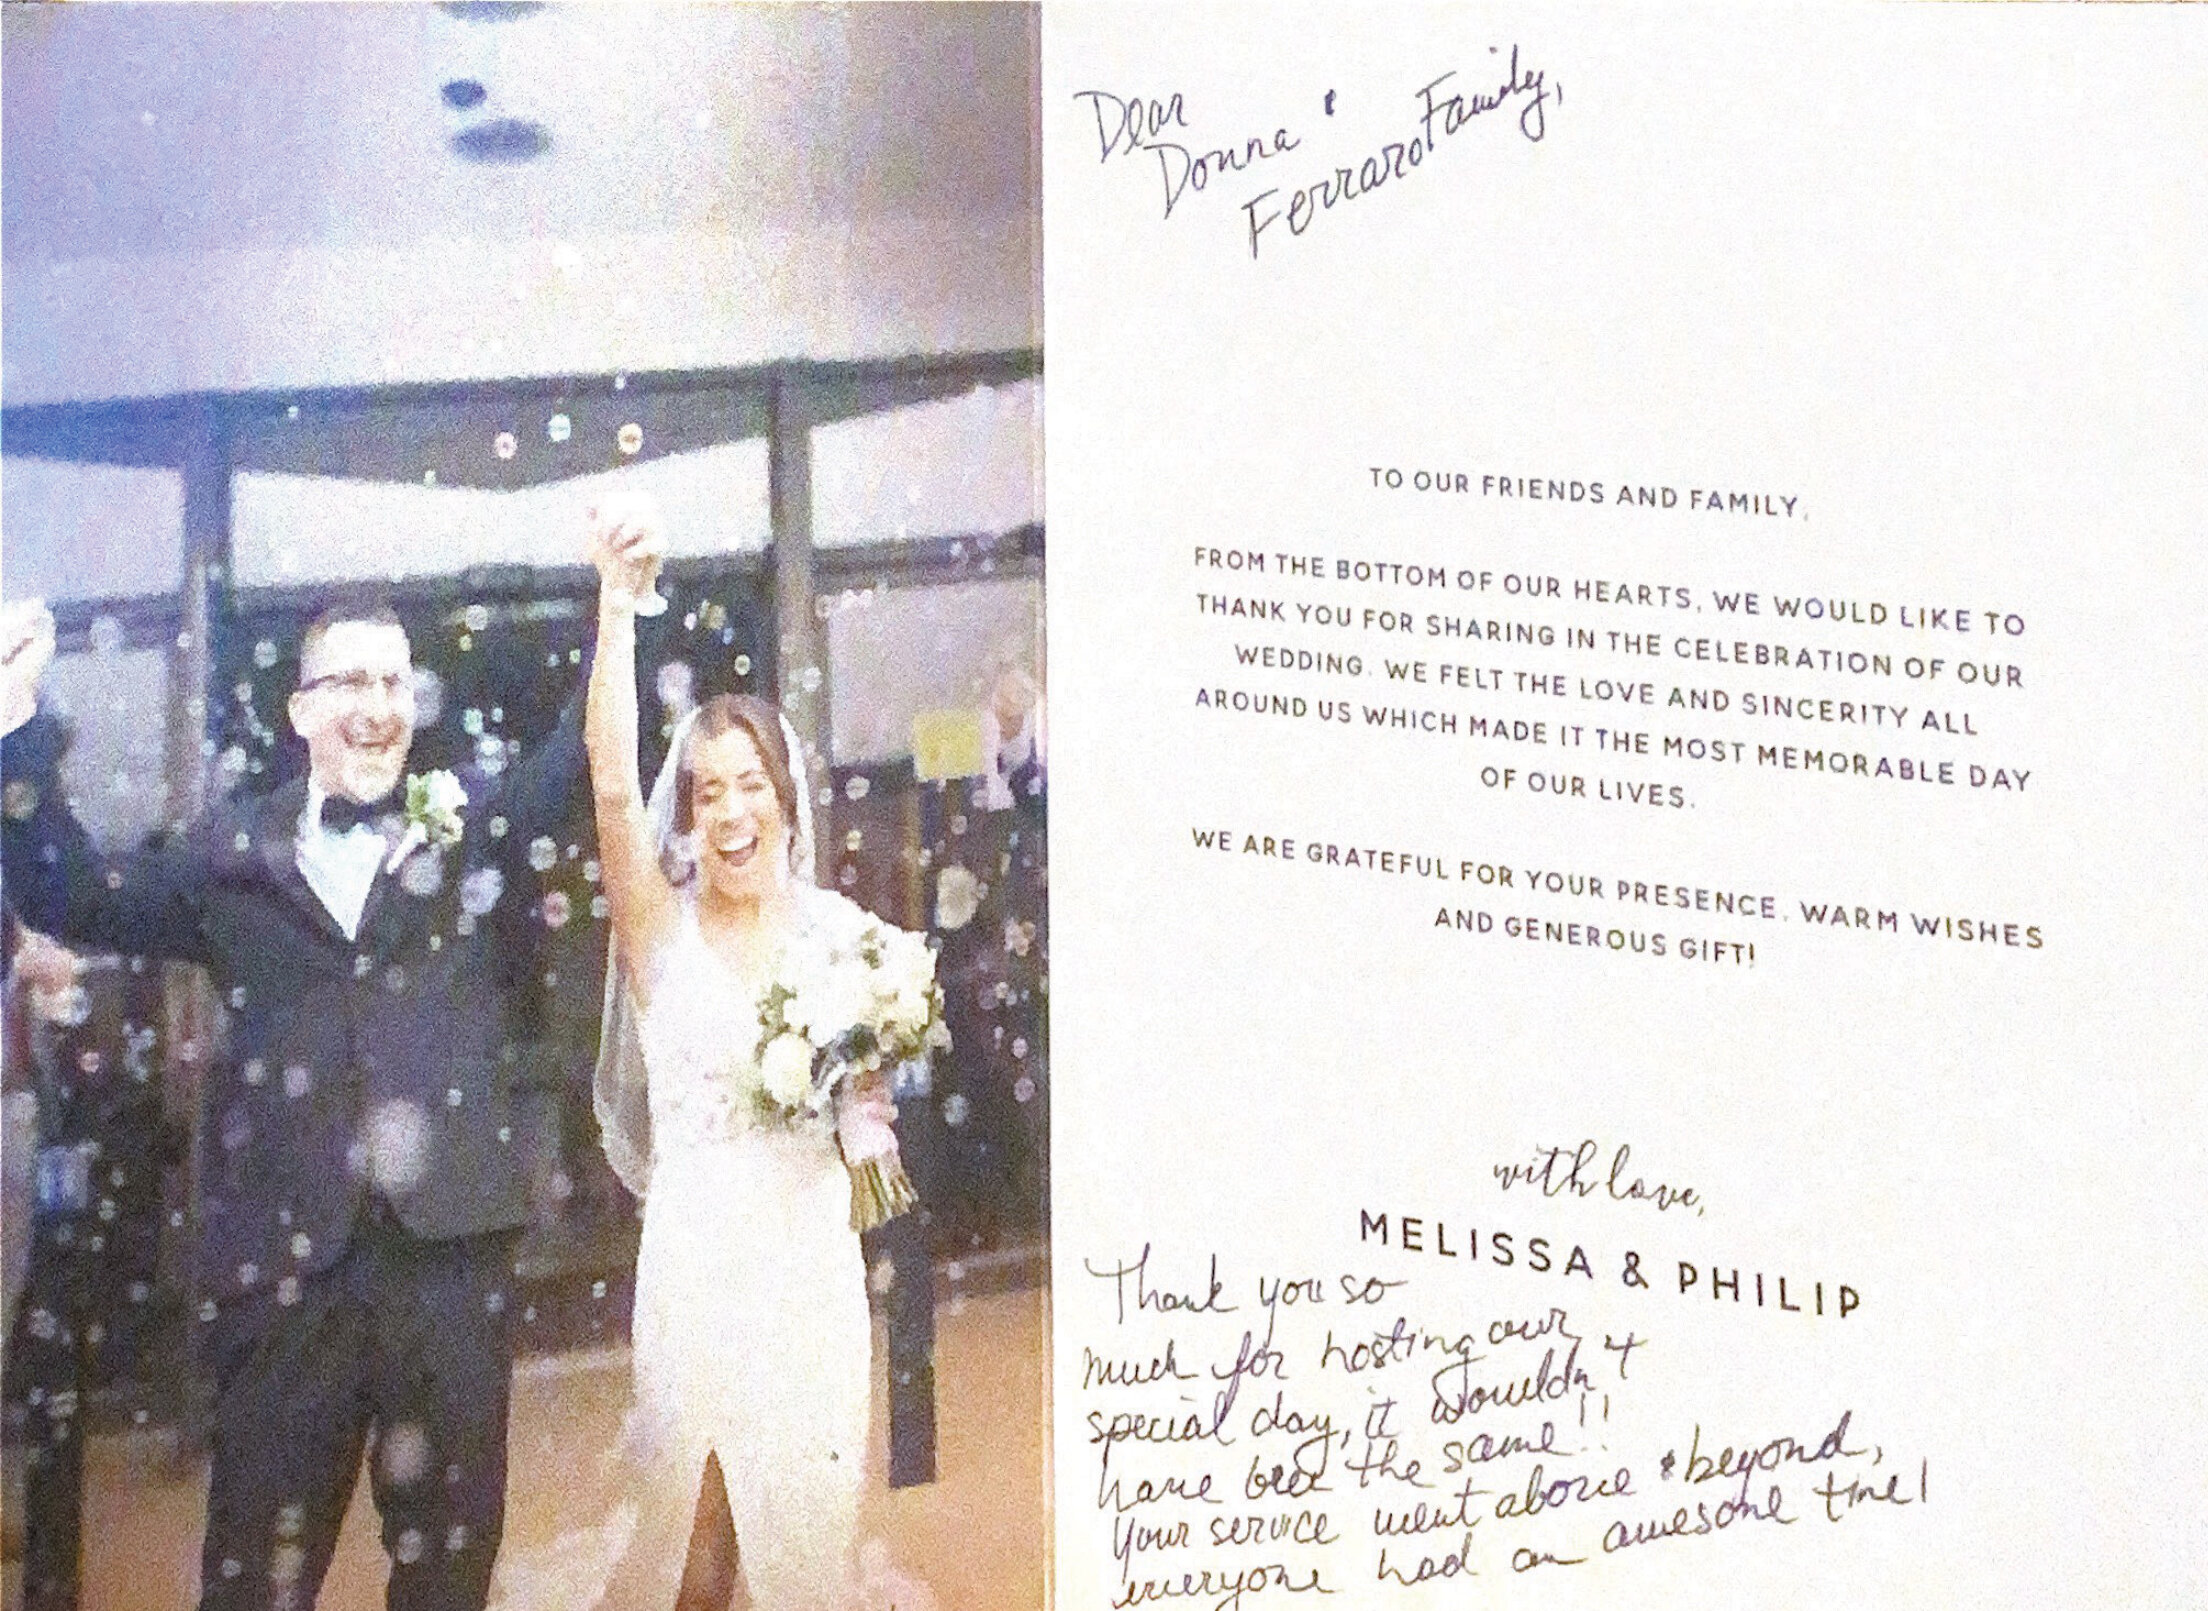 Dear
Donna &
Ferraro Family,
TO OUR FRIENDS AND FAMILY,
FROM THE BOTTOM OF OUR HEARTS, WE WOULD LIKE TO
THANK YOU FOR SHARING IN THE CELEBRATION OF OUR
WEDDING. WE FELT THE LOVE AND SINCERITY ALL
AROUND US WHICH MADE IT THE MOST MEMORABLE DAY
OF OUR LIVES.
WE ARE GRATEFUL FOR YOUR PRESENCE, WARM WISHES
AND GENEROUS GIFT!
with love,
MELISSA & PHILIP
Thank you so
much for hosting our
special day, it wouldn't
have been the same!!
Your service went above & beyond,
everyone had an awesome time!